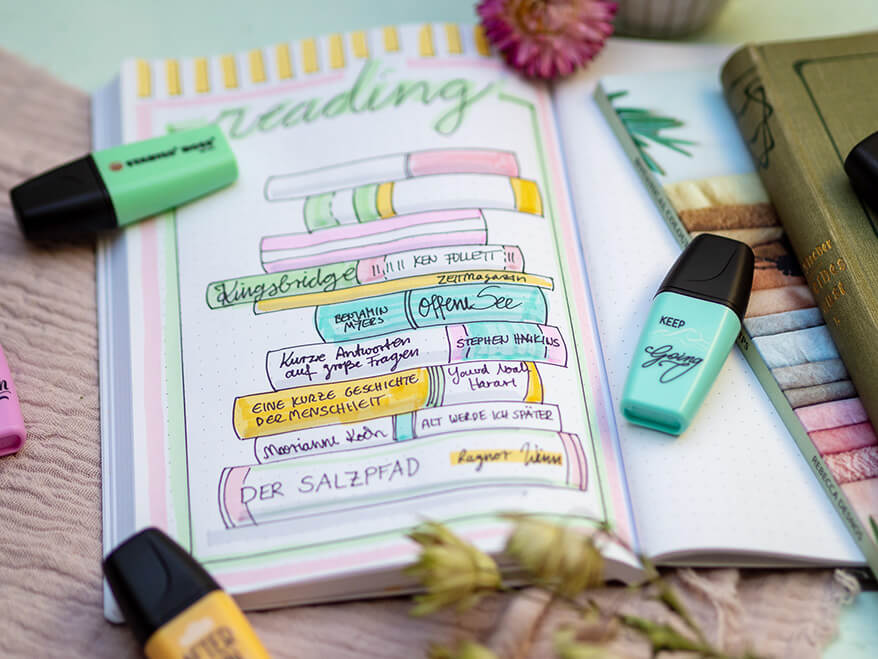 reading
STABILO BOSS
Kingsbridge KEN FOLLETT
ZEITMAGAZIN
BENJAMIN
MYERS
Offene See
Kurze Antworten
auf große Fragen
STEPHEN HAWKINS
EINE KURZE GESCHICHTE
DER MENSCHHEIT
Noah
Harari
Marianne Koch
ALT WERDE ICH SPÄTER
DER SALZPFAD
Winn
KEEP
Going
REBECCA DESNOS